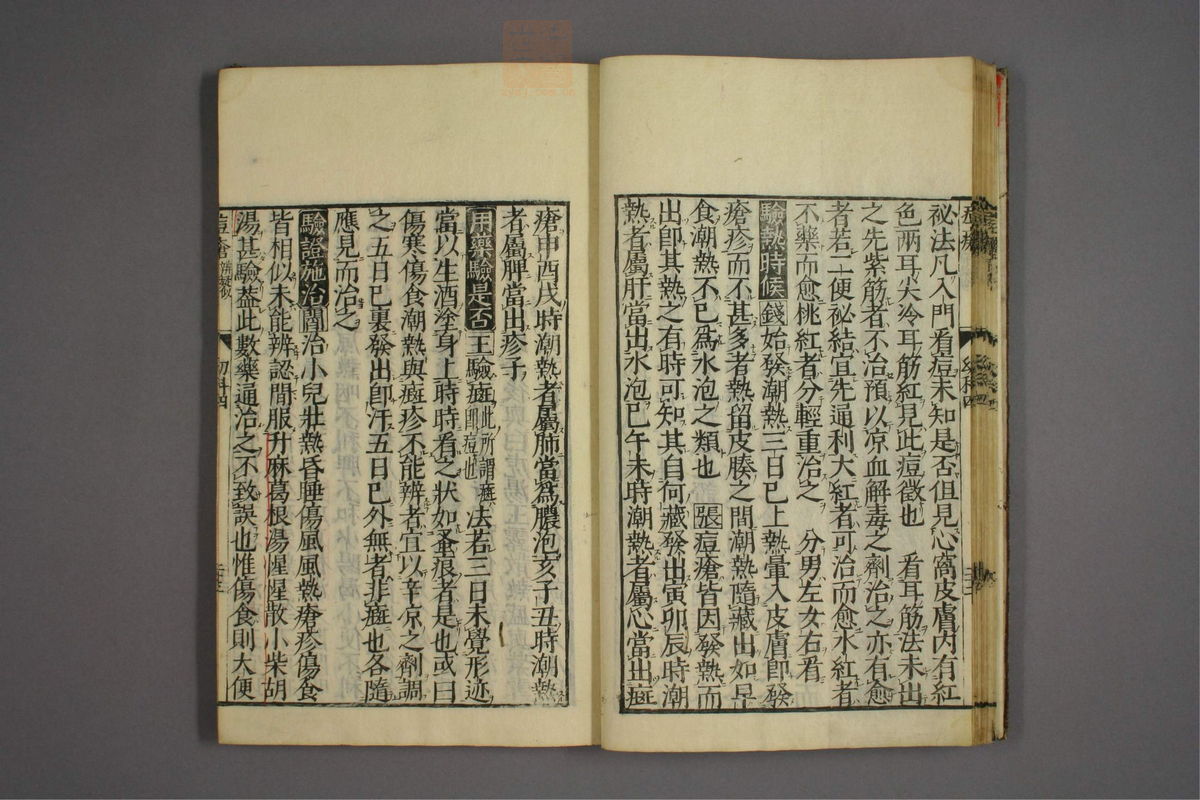 祕法凡入門看痘未知是否但見心窩皮膚内有紅
色兩耳尖冷耳筋紅見此痘徵也　看耳筋法未出
之先紫筋者不治預以凉血解毒之劑治之亦有愈
者若二便祕結宜先通利大紅者可治而愈水紅者
不藥而愈桃紅者分輕重治之　分男左女右看
驗熱時候錢始發潮熱三日已上熱暈入皮膚即發
瘡疹而不甚多者熱留皮腠之間潮熱隨藏出如早
食潮熱不已爲水泡之類也張痘瘡皆因發熱而
出即其熱之有時可知其自何藏發出寅卯辰時潮
熱者屬肝當出水泡巳午未時潮熱者屬心當出㾦
瘡申酉戌時潮熱者屬肺當爲膿泡亥子丑時潮熱
者屬脾當出疹子
用藥驗是否王驗㾦此所謂㾦即痘也法若三日未覺形迹
當以生酒塗身上時時看之状如蚤痕者是也或曰
傷寒傷食潮熱與㾦疹不能辨者宜以辛凉之劑調
之五日已裏發出即汗五日已外無者非㾦也各隨
應見而治之
驗證施治閻治小兒壯熱昏睡傷風風熱瘡疹傷食
皆相似未能辨認間服升麻葛根湯惺惺散小柴胡
湯甚驗葢此數藥通治之不致誤也惟傷食則大便